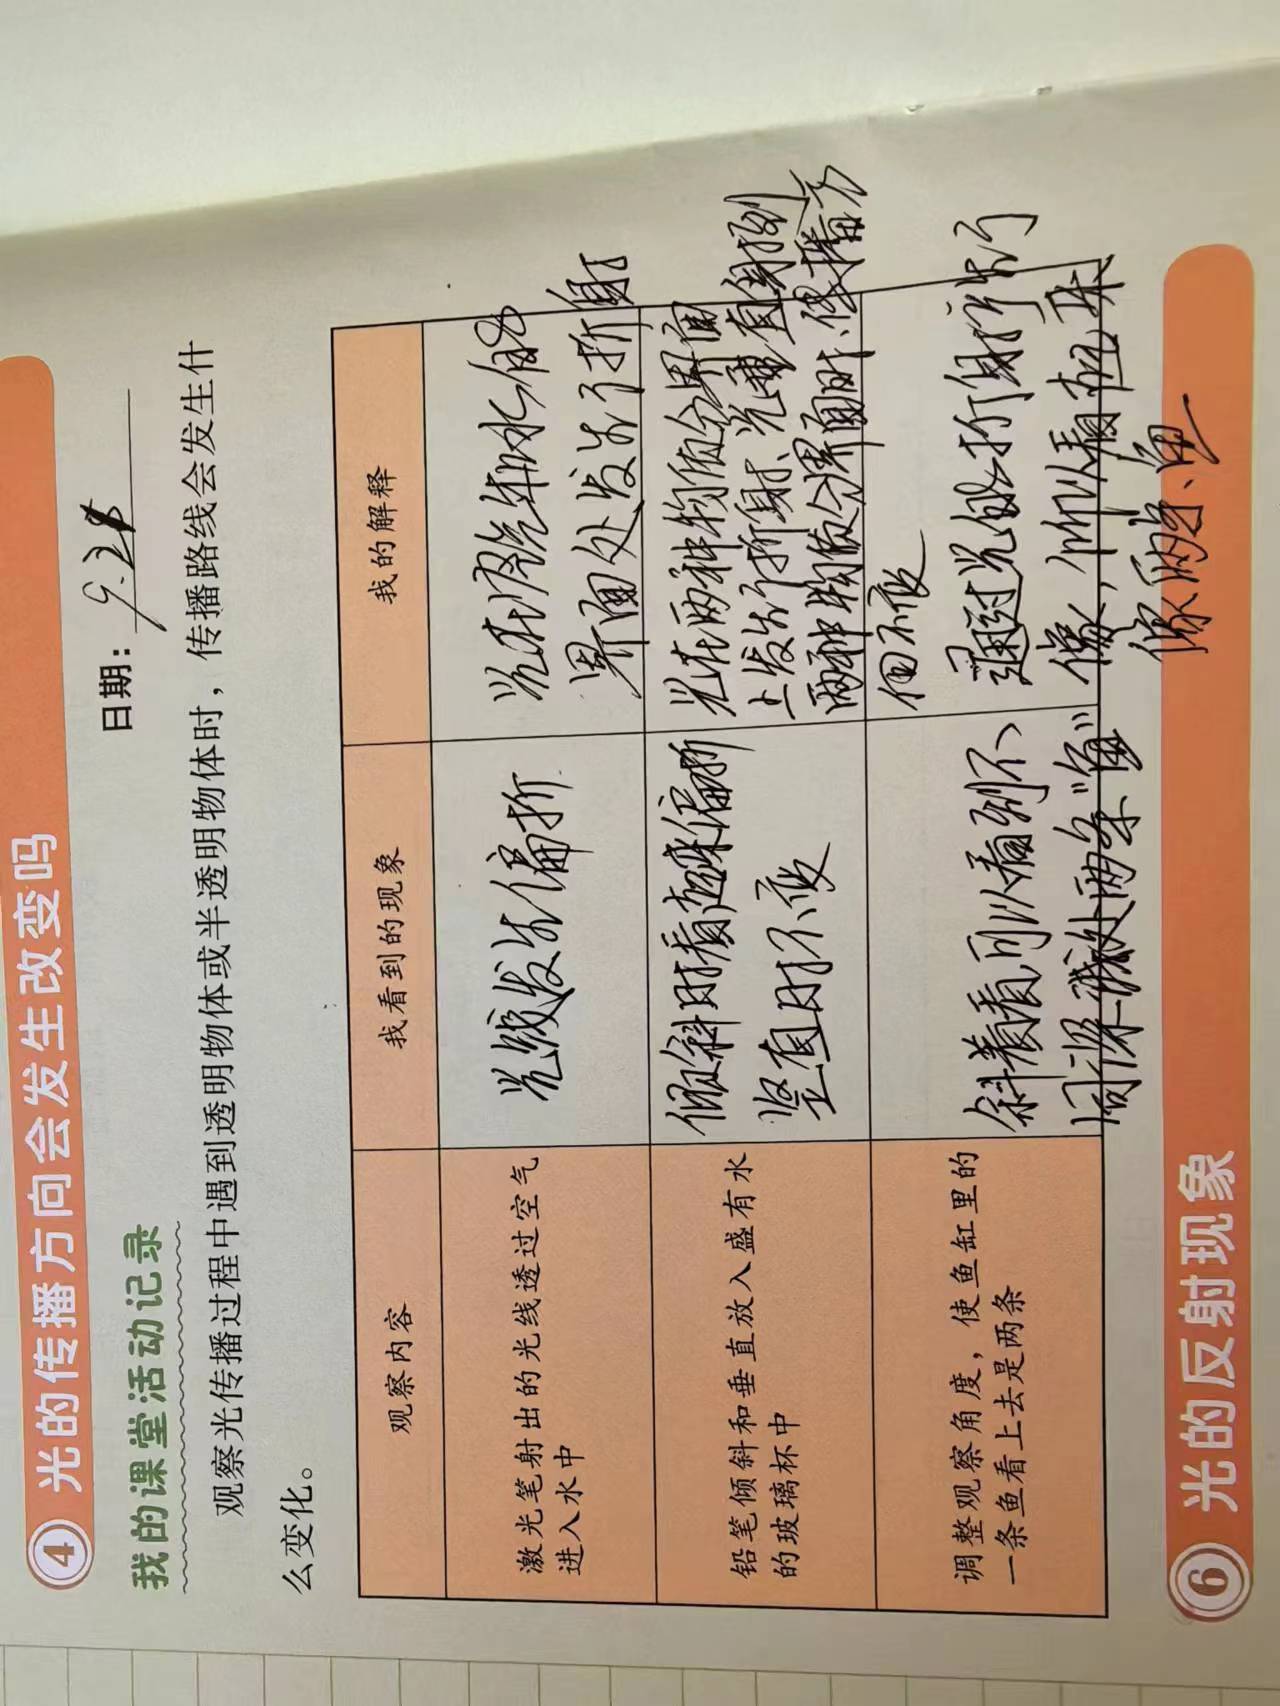 4 光的传播方向会发生改变吗
日期：9.28
我的课堂活动记录
观察光传播过程中遇到透明物体或半透明物体时，传播路线会发生什
么变化。
观察内容
我看到的现象
我的解释
激光笔射出的光线透过空气
进入水中
光线发生偏折
光在空气和水的
界面处发生折射
铅笔倾斜和垂直放入盛有水
的玻璃杯中
倾斜时看起来偏折
竖直时不变
光在两种物质分界面
上发生折射、光垂直射到
两种物质分界面时、传播方
向不变
调整观察角度，使鱼缸里的
一条鱼看上去是两条
斜着看可以看到不
同深浅处两条“鱼”
通过光的折射产生
像，所以看起来
像两条鱼
6 光的反射现象